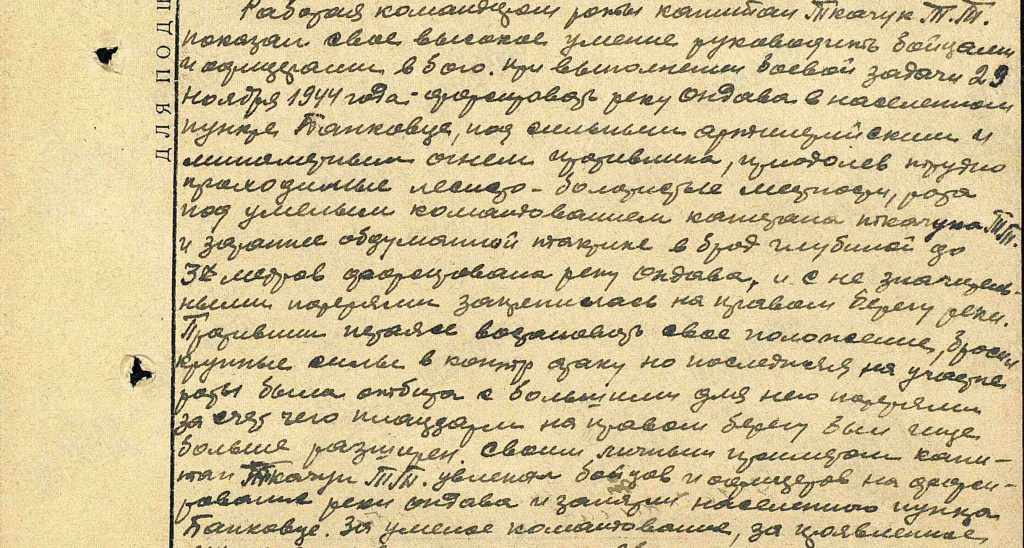 ДЛЯ ПОДШ
Работая командиром роты капитан Ткачук Т.Т.
показал свое высокое умение руководить бойцами
и офицерами в бою. при выполнении боевой задачи 29
ноября 1944 года - форсировать реку Ондава в населенном
пункте Банковце, под сильным артилерийским и
минометным огнем противника, приодолев трудно
проходимые лесисто-болотистые местности, рота
под умелым командованием капитана Ткачука Т.Т.
и заранее обдуманной тактике в брод глубиной до
метров форсировала реку Ондава, и с не значитель-
ными потерями закрепилась на правом берегу реки.
Противник пытаясь востановать свое положение, бросил
крупные силы в контр атаку но последняя на участке
роты была отбита с большими для него потерями
за счет чего плацдарм на правом берегу был еще
больше разширен. Своим личным примером капи-
тан Ткачук Т.Т. увлекал бойцов и офицеров на форси-
рование реки Ондава и занятии населенного пункта
Банковце. За умелое командование, за проявленное